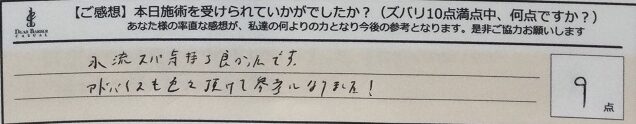 【ご感想】本日施術を受けられていかがでしたか？（ズバリ10点満点中、何点ですか？）
DEAR BARBER
CASUAL
あなた様の率直な感想が、私達の何よりの力となり今後の参考となります。是非ご協力お願いします
水流スパ気持ち良かったです。
アドバイスも色々頂けて参考になりました！
9
点